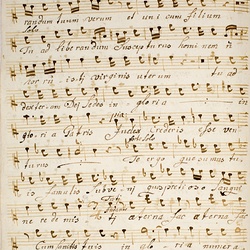 randum tuum verum et uni cum filium
Solo
Tu ad liberandum suscepturus hominem n
uisti virginis uterum tu ad
dexteram Dei sedes in gloria in
gloria Patris Judex crederis esse ven
turus Te ergo quæsumus tu
is famulis subveni quos pretioso sangui
ne redemisti æterna fac æterna
cum sanctis tuis in gloria numera